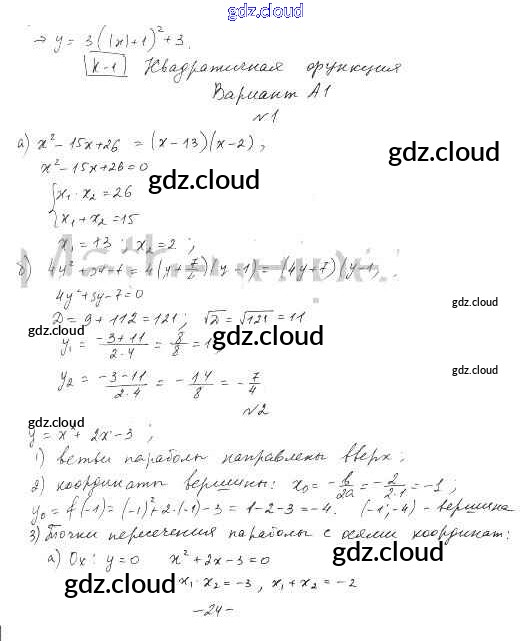 gdz.cloud
→ y = 3(|x|+1)² + 3.
К-1 Квадратичная функция
Вариант А1
№1
а) x² - 15x + 26 = (x - 13)(x - 2),
x² - 15x + 26 = 0
gdz.cloud
gdz.cloud
{x₁ · x₂ = 26
{x₁ + x₂ = 15
x₁ = 13 ; x₂ = 2 ;
б) 4y² + 3y - 7 = 4(y + 7/4)(y - 1) = (4y + 7)(y - 1)
4y² + 3y - 7 = 0
gdz.cloud
Д = 9 + 112 = 121; √Д = √121 = 11
gdz.cloud
gdz.cloud
y₁ = (-3+11)/(2·4) = 8/8 = 1
gdz.cloud
y₂ = (-3-11)/(2·4) = -14/8 = -7/4
№2
gdz.cloud
y = x² + 2x - 3 ;
1) ветви параболы направлены вверх;
2) координаты вершины: x₀ = -b/2a = -2/(2·1) = -1 ;
y₀ = f(-1) = (-1)² + 2·(-1) - 3 = 1 - 2 - 3 = -4. (-1; -4) - вершина
3) Точки пересечения параболы с осями координат:
а) Ox: y = 0 x² + 2x - 3 = 0
gdz.cloud
gdz.cloud
x₁ · x₂ = -3 , x₁ + x₂ = -2
-24-